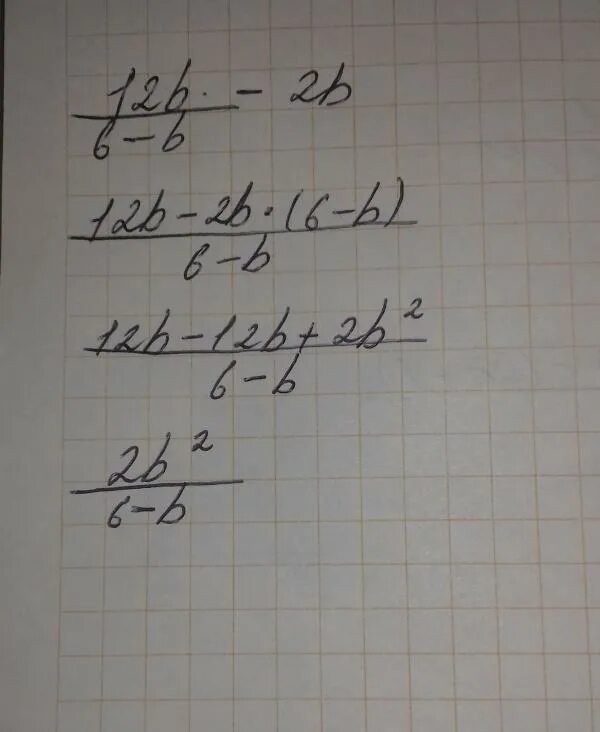 12b - 2b
6-b
12b-2b·(6-b)
6-b
12b-12b+2b²
6-b
2b²
6-b